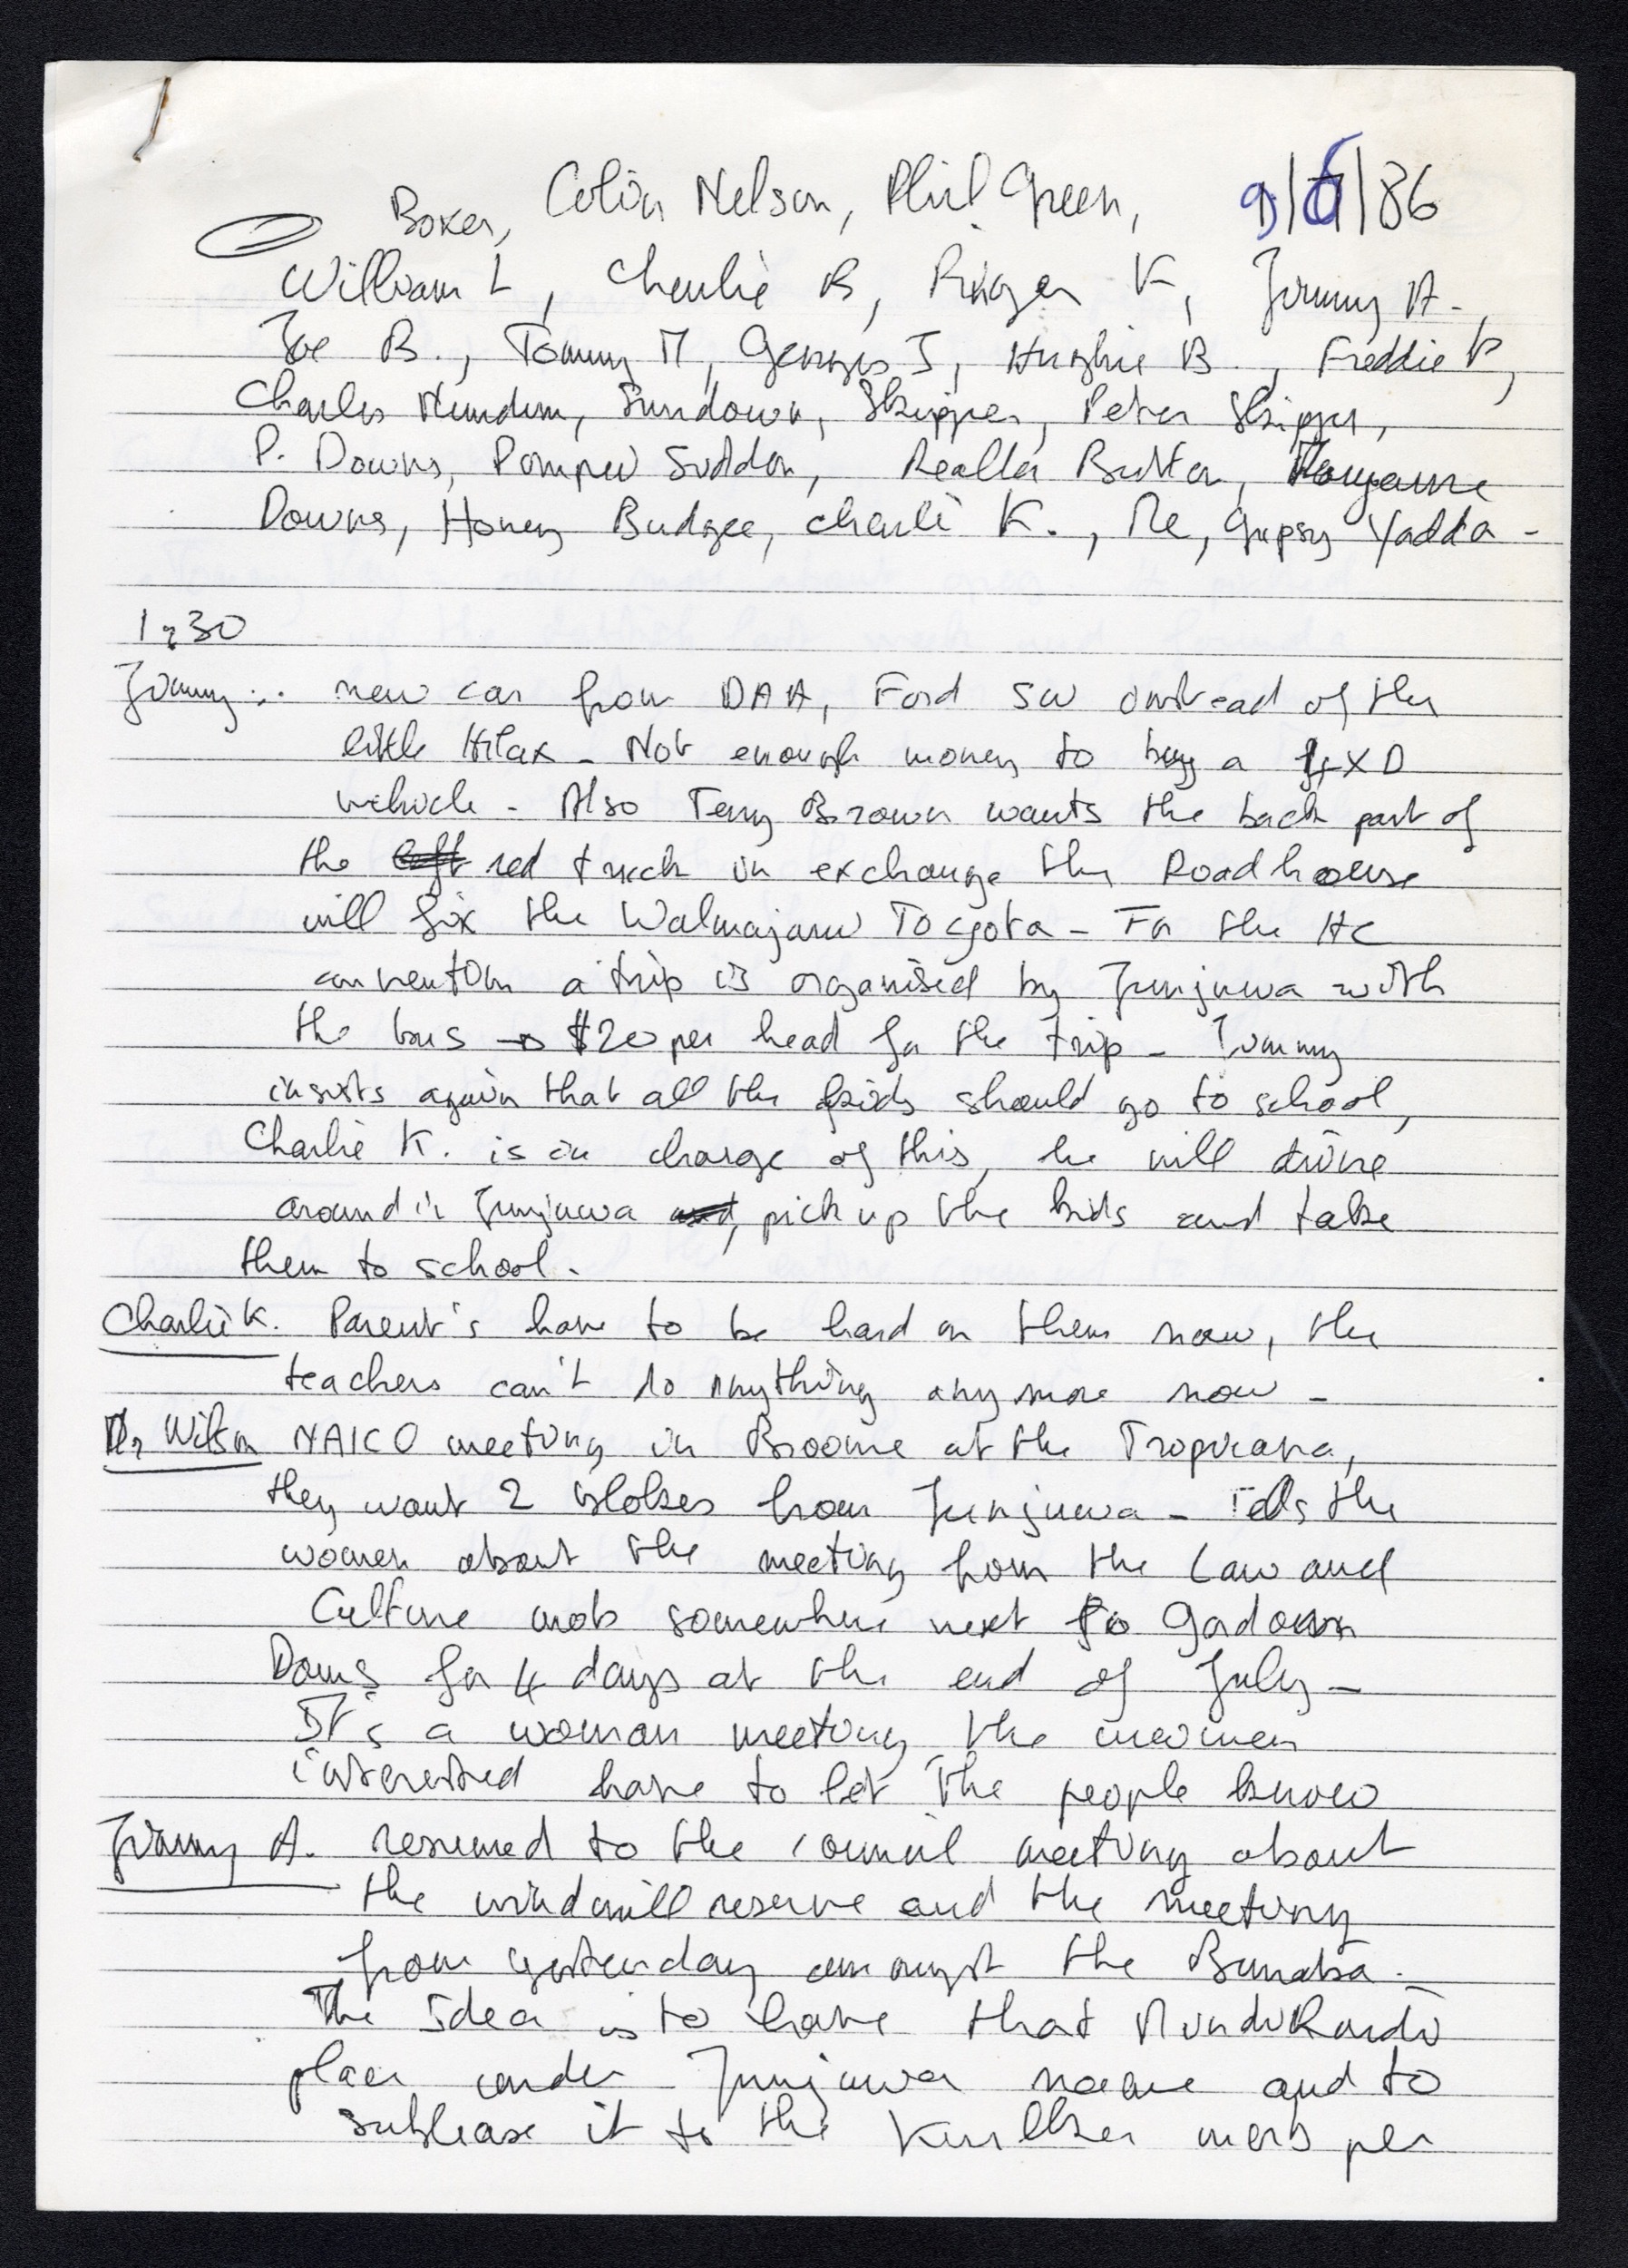 Boxer, Colin Nelson, Phil Green, 9/6/86
William L, Charlie B, Ringer K, Jimmy A.,
Joe B., Tommy M, Georges J, Hughie B., Freddie P,
Charles Mundum, Sundown, Skipper, Peter Skipper,
P. Downs, Pompey Siddon, Realla Butter,
Downs, Honey Budgee, Charlie K., Me, Gypsy Yadda -
1.30
Jimmy: new car from DAA, Ford SW instead of the
little Hilax - Not enough money to buy a 4XD
vehicle - Also Terry Brown wants the back part of
the left red truck in exchange the Roadhouse
will fix the Walmajarri Toyota - For the HC
convention a trip is organised by Junjuwa with
the bus → $20 per head for the trip - Jimmy
insists again that all the kids should go to school,
Charlie K. is in charge of this, he will drive
around in Junjuwa and, pick up the kids and take
them to school -
Charlie K. Parent's have to be hard on them now, the
teachers can't do anything anymore now -
Mr Wilson NAICO meeting in Broome at the Tropicana,
they want 2 blokes from Junjuwa - Tells the
women about the meeting from the Law and
Culture mob somewhere next to Gordown
Downs for 4 days at the end of July -
It's a woman meeting, the women
interested have to let the people know
Jimmy A. resumed to the council meeting about
the windmill reserve and the meeting
from yesterday amongst the Bunaba -
The idea is to have that
place under Junjuwa name and to
sublease it to the mob per